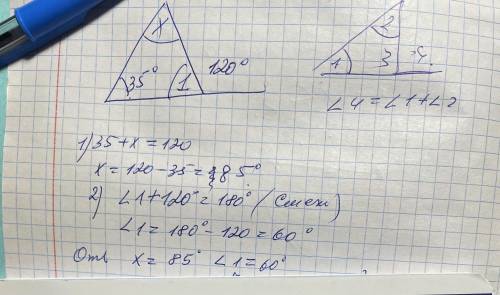 x
35° 1 120°
2
1 3 4
∠4 = ∠1 + ∠2
1) 35 + x = 120
x = 120 - 35 = 85°
2) ∠1 + 120° = 180° (Смеж)
∠1 = 180° - 120 = 60°
Отв x = 85° ∠1 = 60°